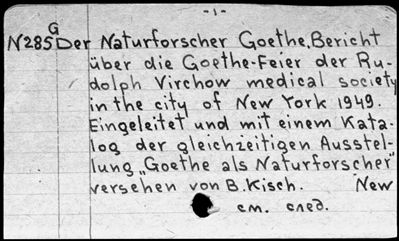 -1-
G
N285 Der Naturforscher Goethe. Bericht
über die Goethe-Feier der Ru-
dolph Virchow medical society
in the city of New York 1949.
Eingeleitet und mit einem Kata-
log der gleichzeitigen Ausstel-
lung „Goethe als Naturforscher"
versehen von B. Kisch. New
см. след.